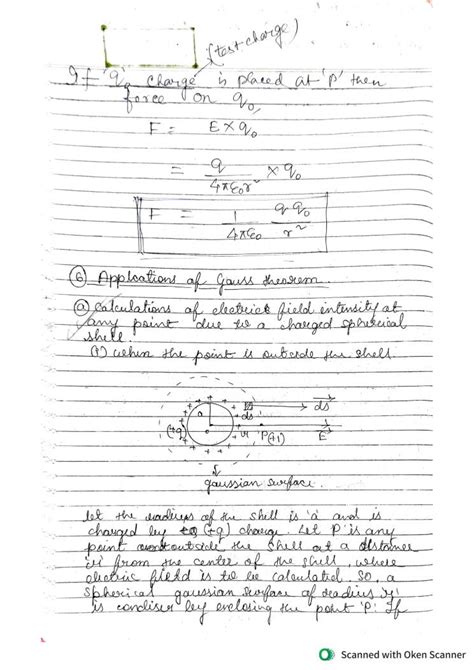 (test charge)
If 'q₀' charge is placed at 'P' then
force on q₀,
F = E × q₀
= q / 4πε₀r² × q₀
F = 1 / 4πε₀ q q₀ / r²
⑥ Applications of Gauss theorem
ⓐ calculations of electric field intensity at
any point due to a charged spherical
shell.
(i) when the point is outside the shell.
a
+ + + + + +
ds
ds
(+q)
r
P(+1)
E
gaussian surface.
let the radius of the shell is 'a' and is
charged by (+q) charge. Let P is any
point outside the shell at a distance
'r' from the center of the shell, where
electric field is to be calculated. So, a
spherical gaussian surface of radius 'r'
is condiser by enclosing the point 'P'. If
Scanned with Oken Scanner